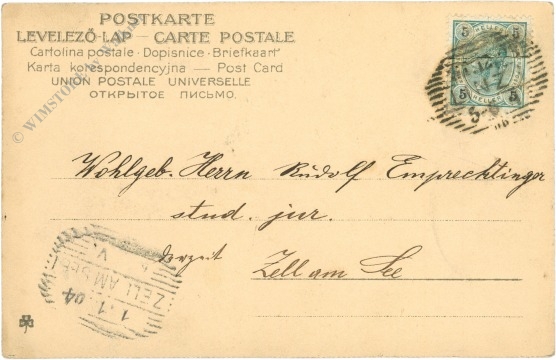 POSTKARTE
LEVELEZŐ-LAP — CARTE POSTALE
Cartolina postale · Dopisnice · Briefkaart
Karta korespondencyjna — Post Card
UNION POSTALE UNIVERSELLE
ОТКРЫТОЕ ПИСЬМО.
© WIMSTORE
5 5
HELLER
5 5
HELLER
Wohlgeb. Herrn Rudolf Emprechtinger
stud. jur.
derzeit
Zell am See
ZELL AM SEE
1 1 04
V